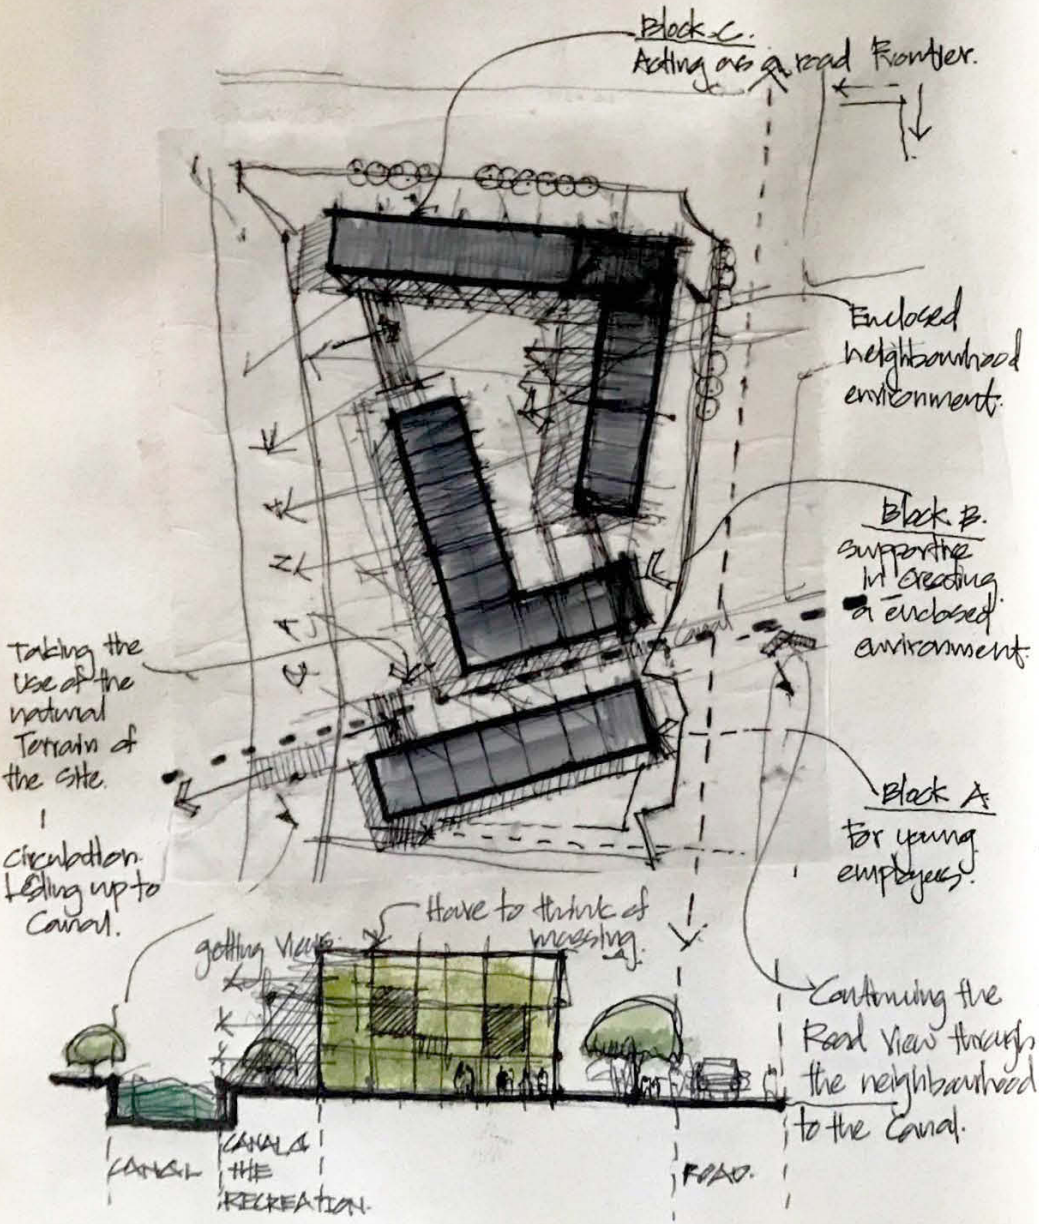 Block C.
Acting as a road Frontier.
Enclosed
neighbourhood
environment.
Block B.
supportive
in creating
a enclosed
environment.
CANAL
Canal
Taking the
Use of the
natural
Terrain of
the site.
Circulation
Leding up to
Canal.
Block A
For young
employees.
Have to think of
massing.
getting views.
Continuing the
Road View through
the neighbourhood
to the Canal.
CANAL
CANAL &
THE
RECREATION.
ROAD.